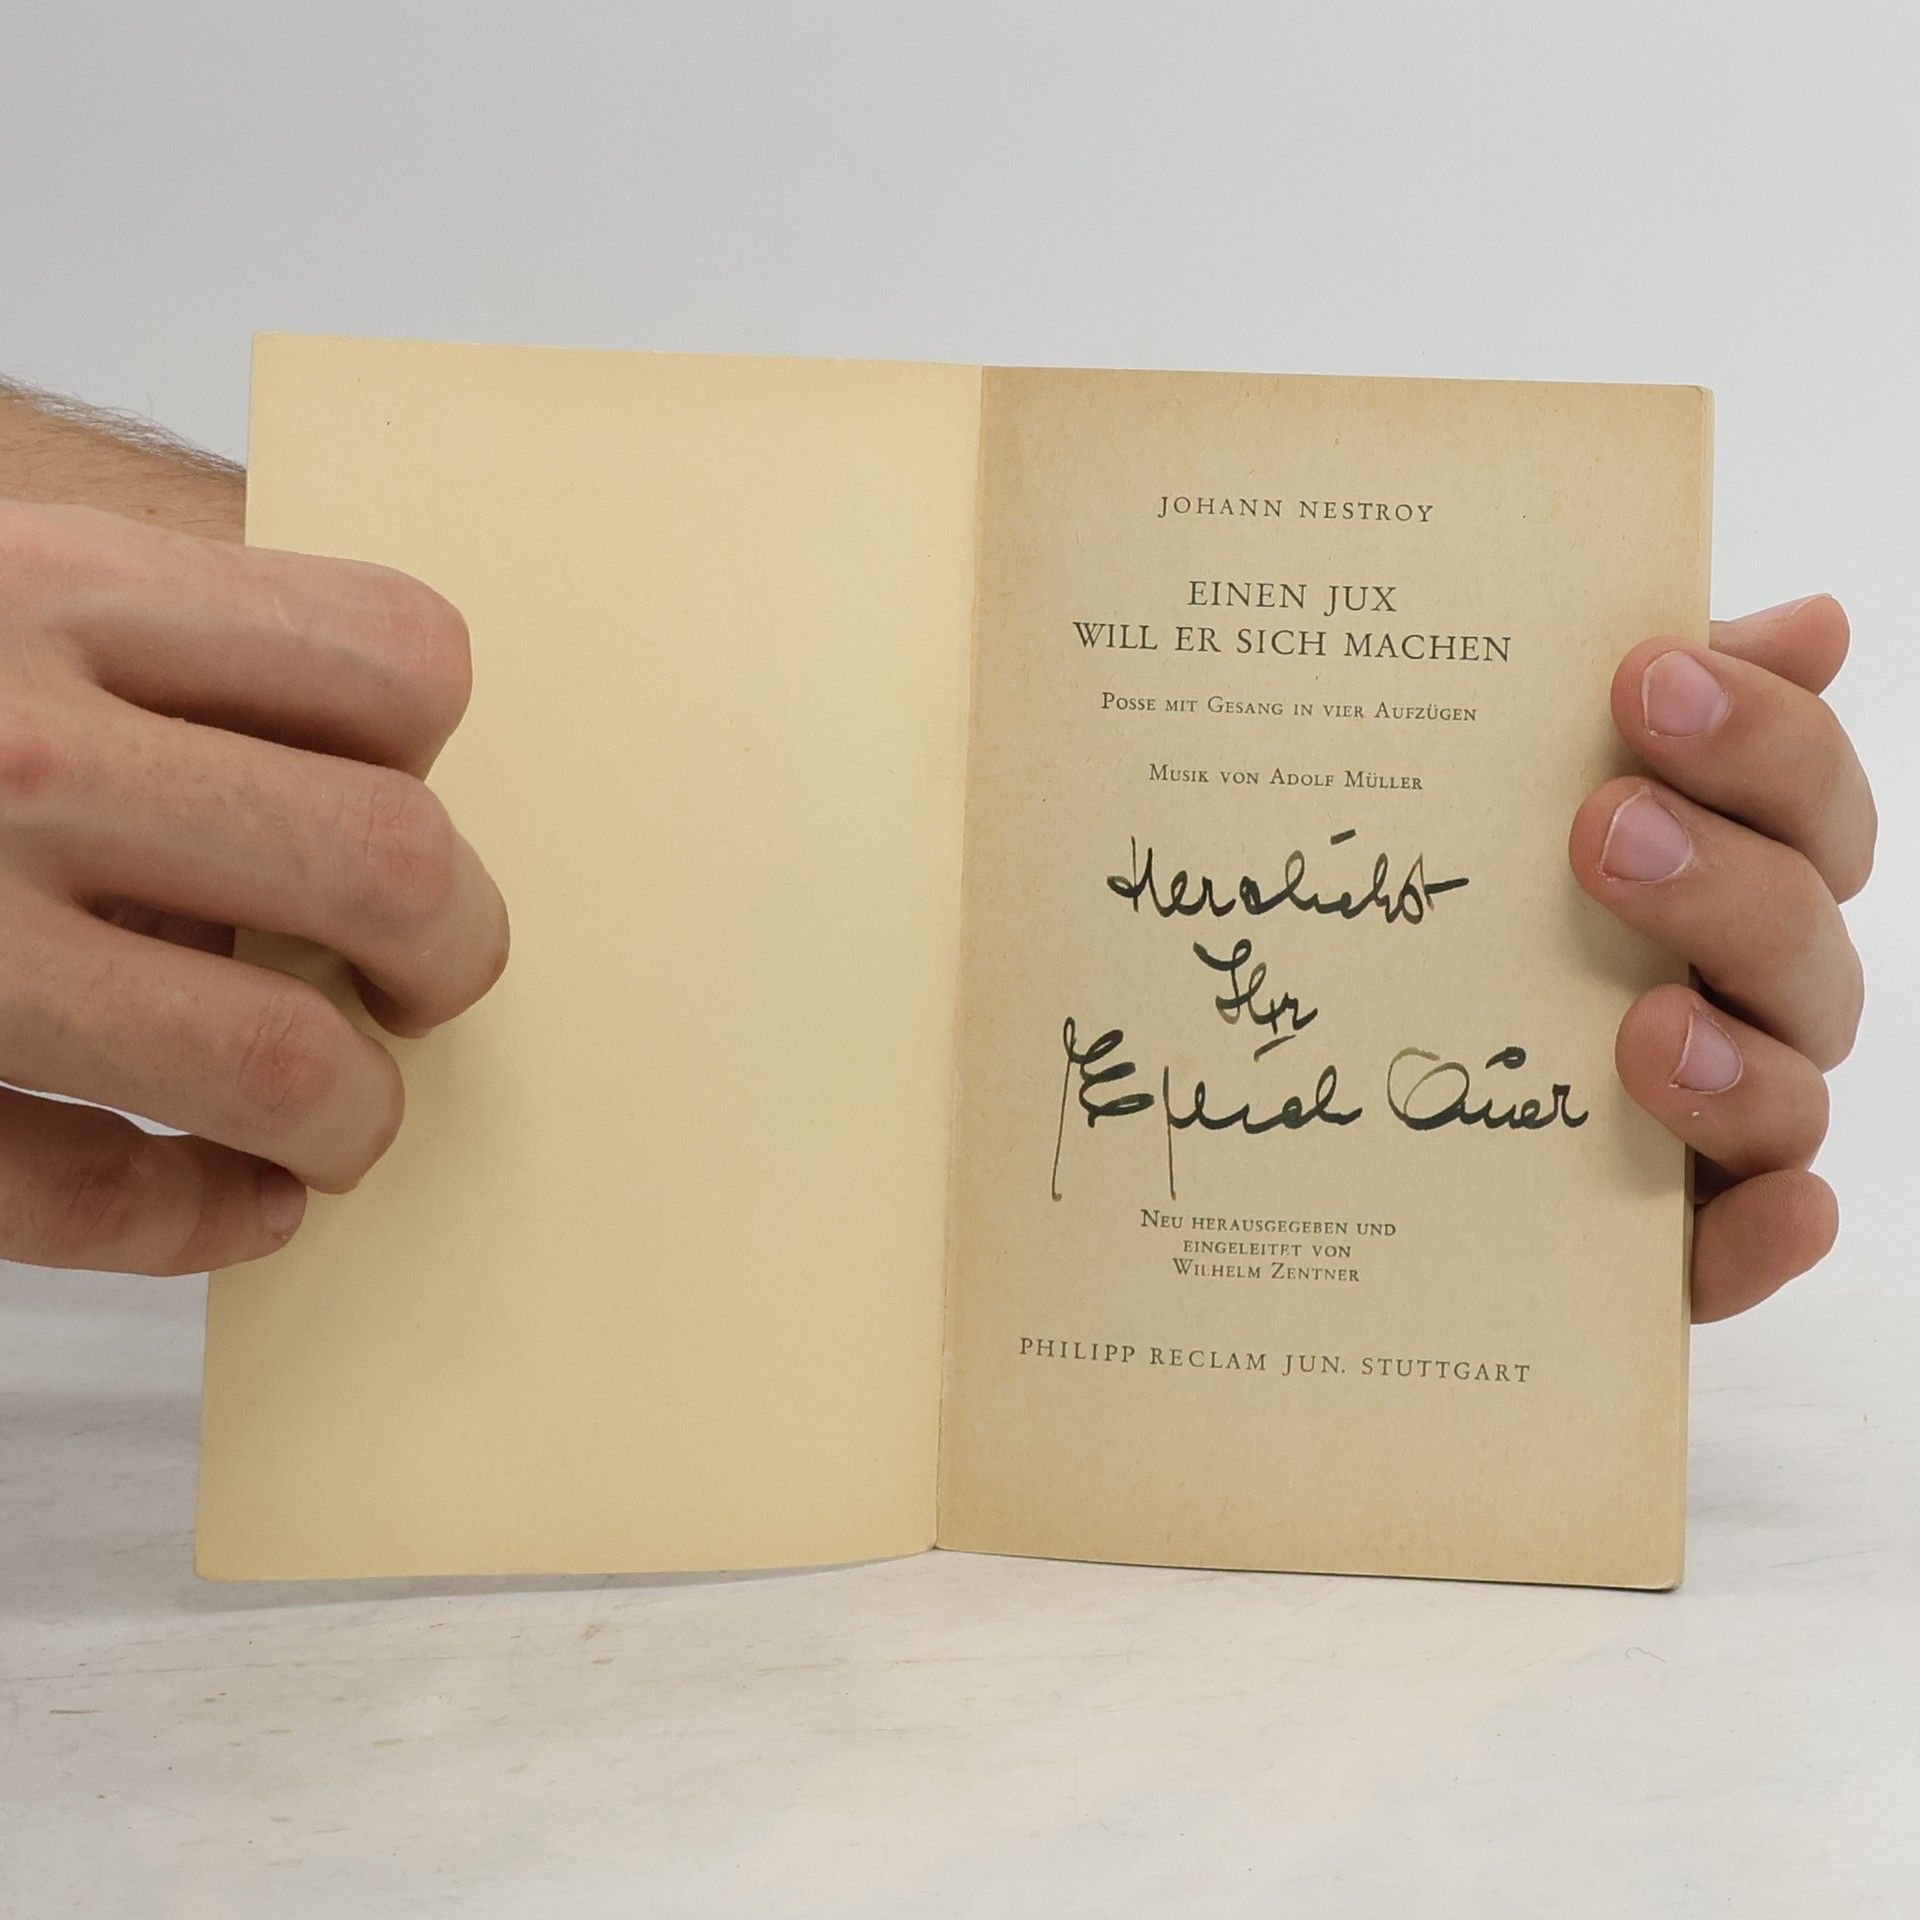 JOHANN NESTROY
EINEN JUX
WILL ER SICH MACHEN
POSSE MIT GESANG IN VIER AUFZÜGEN
MUSIK VON ADOLF MÜLLER
Herzlichst
Ihr
Erich Auer
NEU HERAUSGEGEBEN UND
EINGELEITET VON
WILHELM ZENTNER
PHILIPP RECLAM JUN. STUTTGART